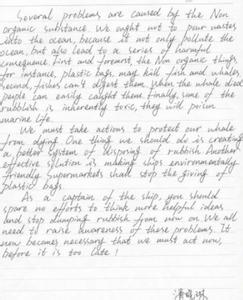 Several problems are caused by the Non
organic substance. We ought not to pour wastes
into the ocean, because it not only pollute the
ocean, but also lead to a series of harmful
consequence. First and foremost, the Non organic things,
for instance, plastic bags, may kill fish and whales.
Second, fishes can't digest them. When the whale died
people can easily caught them. Finally, some of the
rubbish is inherently toxic, they will poison
marine life.
We must take actions to protect our whale
from dying. One thing we should do is creating
a better system of disposing of rubbish. Another
effective solution is making ships environmentally
friendly. Supermarkets shall stop the giving of
plastic bags.
As a captain of the ship, you should
spare no efforts to think more helpful ideas
and stop dumping rubbish from now on. We all
need to raise awareness of these problems. It
now becomes necessary that we must act now,
before it is too late!